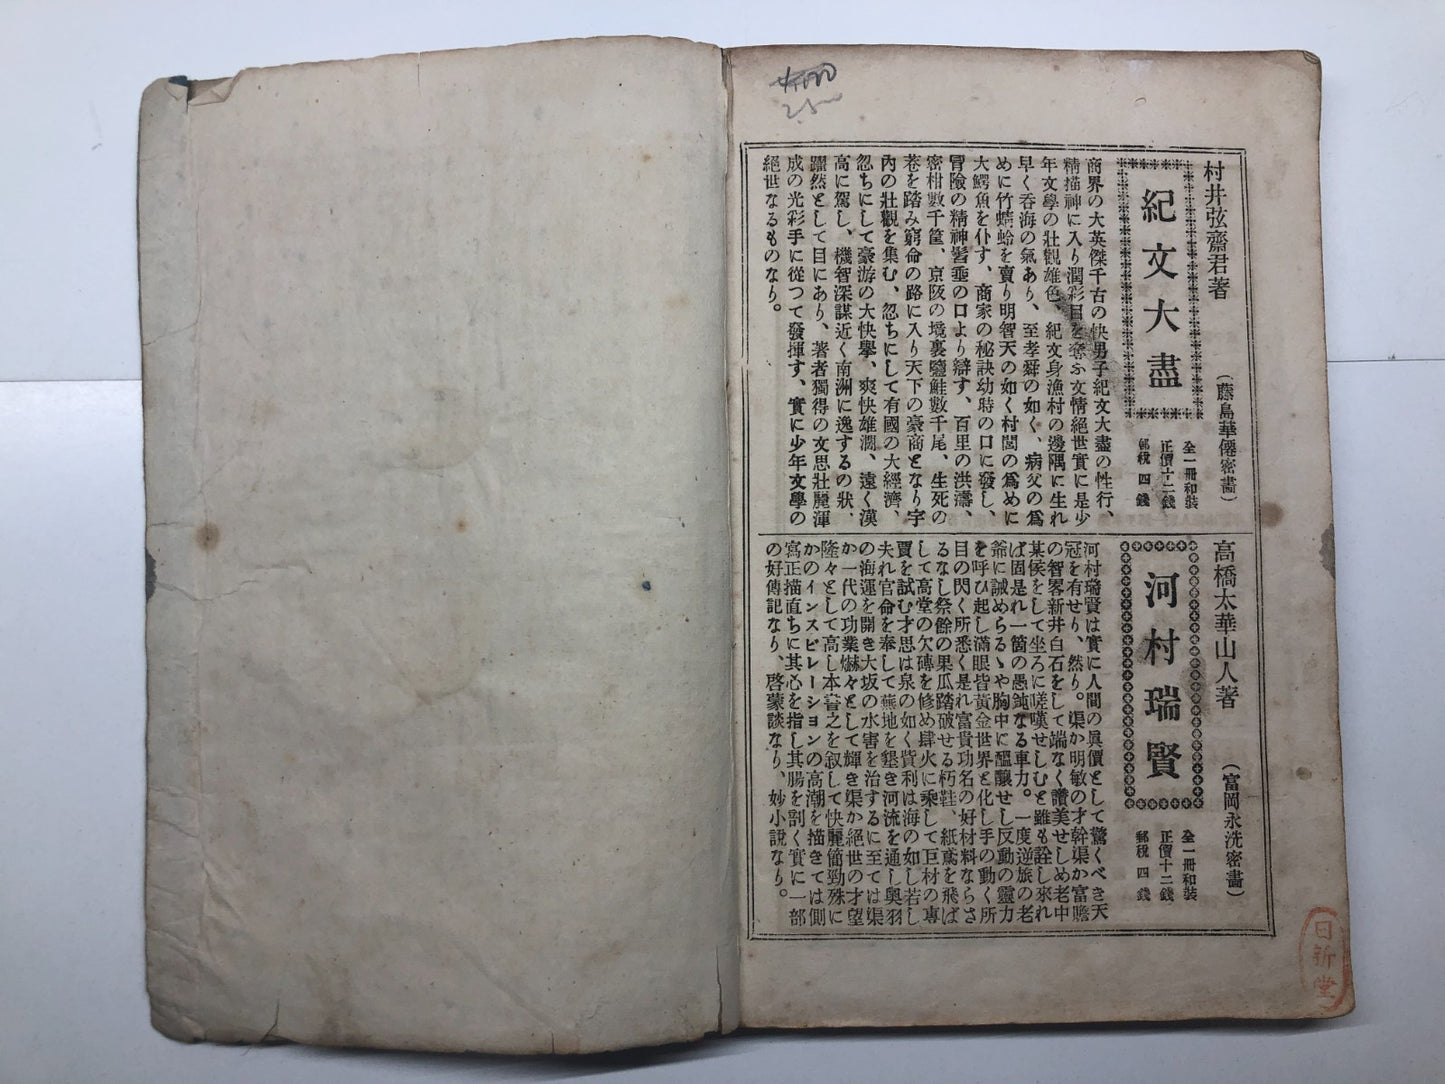 村井弦齋君著
紀文大盡
(藤島華僊密畵)
全一冊和裝
正價十二錢
郵稅四錢
商界の大英傑千古の快男子紀文大盡の性行、
精描神に入り潤彩目を奪ふ文情絕世實に是少
年文學の壯觀雄色、紀文身漁村の邊隅に生れ
早く呑海の氣あり、至孝舜の如く、病父の爲
めに竹蜻蛉を賣り明智天の如く村閭の爲めに
大鰐魚を仆す、商家の秘訣幼時の口に發し、
冒險の精神髫齔の口より辯す、百里の洪濤、
密柑數千筐、京阪の境裏鹽鮭數千尾、生死の
巷を踏み窮命の路に入り天下の豪商となり宇
內の壯觀を集む、忽ちにして有國の大經濟、
忽ちにして豪游の大快擧、爽快雄濶、遠く漢
高に駕し、機智深謀近く南洲に逸するの狀、
躍然として目にあり、著者獨得の文思壯麗渾
成の光彩手に從つて發揮す、實に少年文學の
絕世なるものなり。
高橋太華山人著
河村瑞賢
(富岡永洗密畵)
全一冊和裝
正價十二錢
郵稅四錢
河村瑞賢は實に人間の眞價として驚くべき天
冠を有せり、然り。渠か明敏の才幹渠か富贍
の智畧新井白石をして端なく讚美せしめ老中
某侯をして坐ろに嗟嘆せしむと雖も詮し來れ
ば固是れ一箇の愚鈍なる車力。一度逆旅の老
爺に誡めらるゝや胸中に醞釀せし反動の靈力
を呼び起し滿眼皆黃金世界と化し手の動く所
目の閃く所悉く是れ富貴功名の好材料ならさ
るなし祭餘の果瓜踏破せる朽鞋、紙鳶を飛ば
して高堂の欠磚を修め肆火に乘して巨材の專
賣を試む才思は泉の如く貨利は海の如し若し
夫れ官命を奉して蕪地を墾き河流を通し奥羽
の海運を開き大坂の水害を治するに至ては渠
か一代の功業爀々として輝き渠か絕世の才望
隆々として高し本書之を叙して快麗簡勁殊に
かのインスピレーションの高潮を描きては側
寫正描直ちに其心を指し其腸を割く實に一部
の好傳記なり、啓蒙談なり、妙小說なり。
日新堂